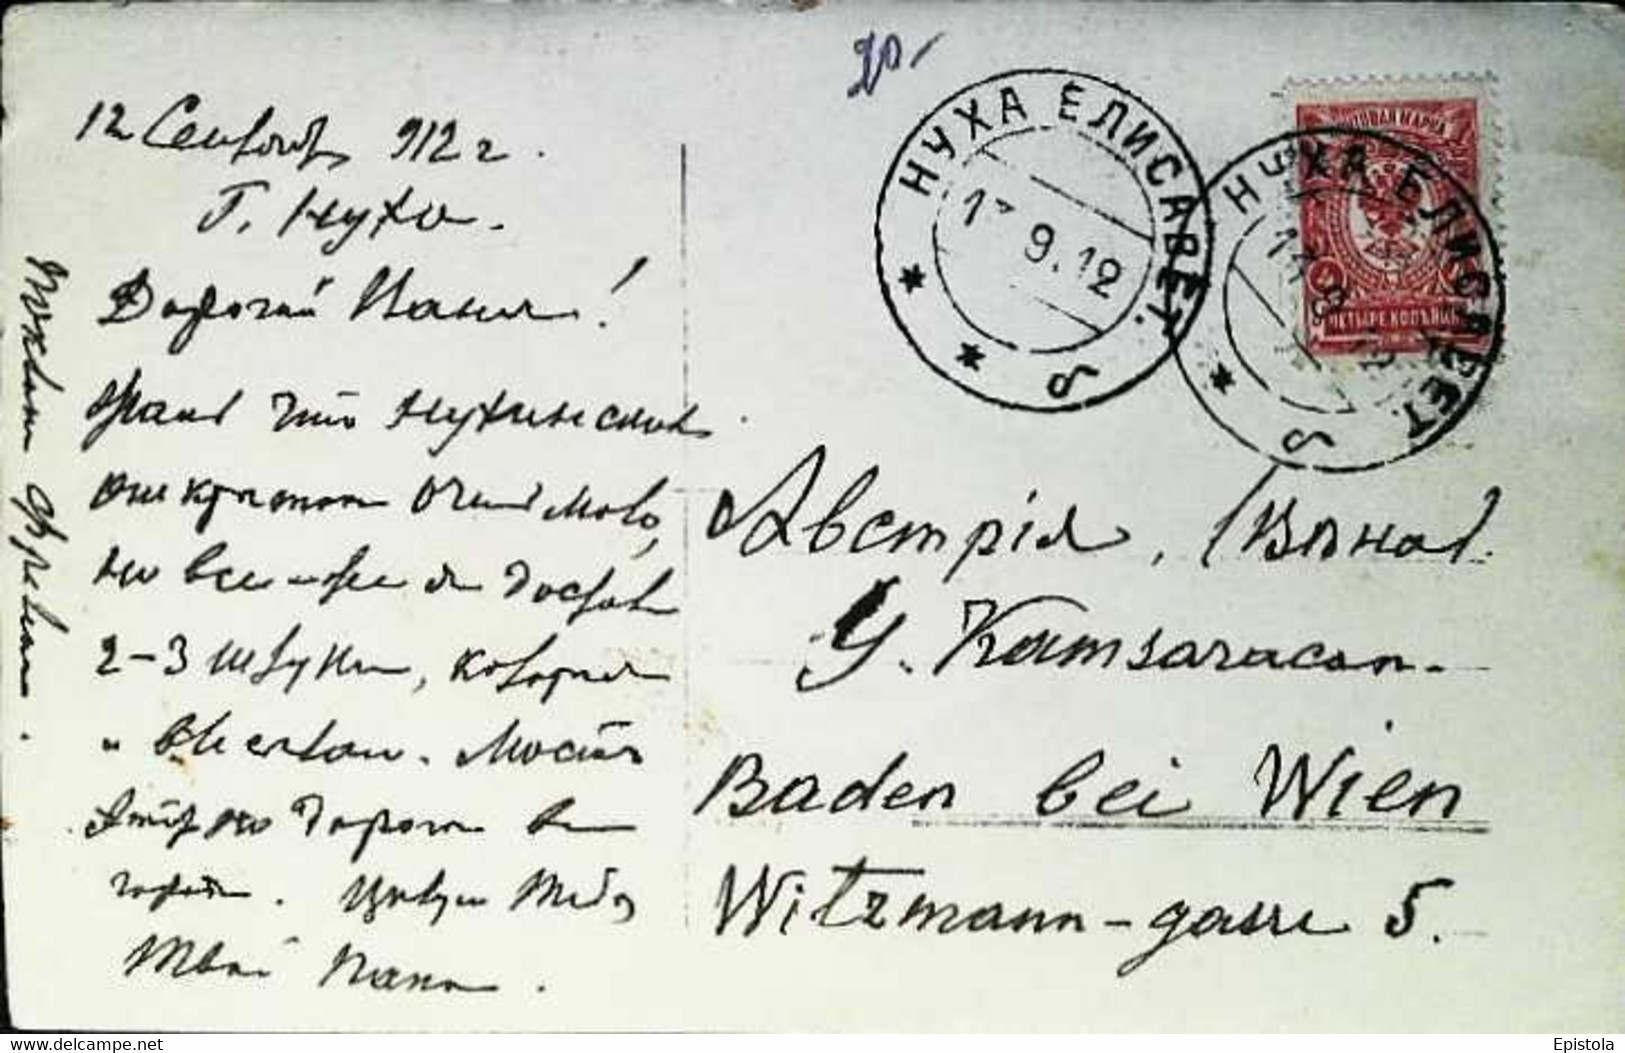 12 Сентября 912 г.
Г. Нуха.
Дорогой Ваня!
что Нухинских
открыток очень мало,
но все-же я достал
2-3 штуки, которыя
и высылаю.
дорога в
городе. Целую тебя
Твой Папа.
20-
НУХА ЕЛИСАВЕТ.
9.12
НУХА ЕЛИСАВЕТ.
ПОЧТОВАЯ МАРКА
4
ЧЕТЫРЕ КОПѢЙКИ
Австрія, (Вѣна).
Y. Kamsaracan.
Baden bei Wien
Witzmann-gasse 5.
delcampe.net
Epistola